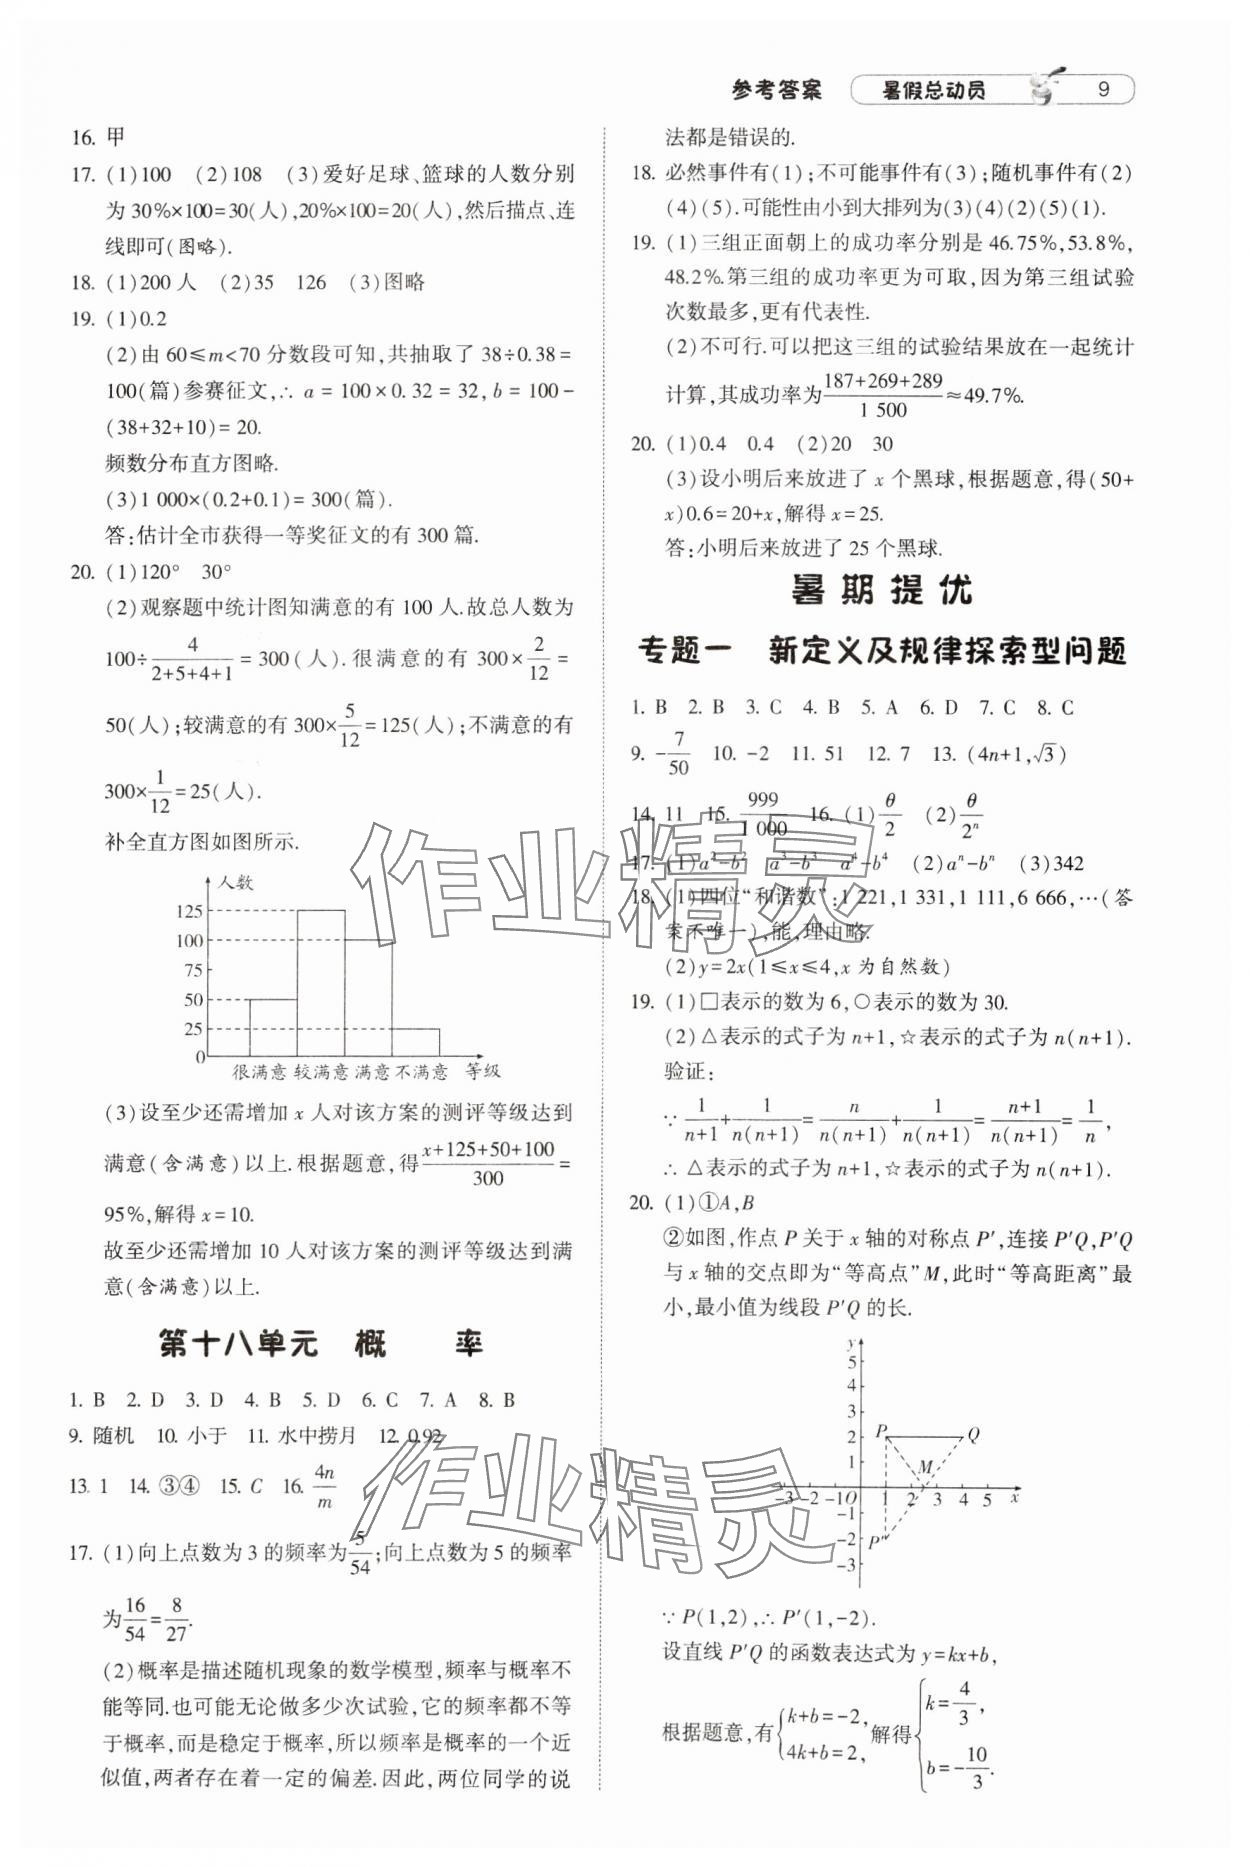 参考答案 暑假总动员 9
16. 甲
17. (1)100 (2)108 (3)爱好足球、篮球的人数分别
为30%×100=30(人),20%×100=20(人),然后描点、连
线即可(图略).
18. (1)200人 (2)35 126 (3)图略
19. (1)0.2
(2)由60≤m<70分数段可知,共抽取了38÷0.38=
100(篇)参赛征文,∴ a=100×0.32=32,b=100-
(38+32+10)=20.
频数分布直方图略.
(3)1 000×(0.2+0.1)=300(篇).
答:估计全市获得一等奖征文的有300篇.
20. (1)120° 30°
(2)观察题中统计图知满意的有100人.故总人数为
100÷4/(2+5+4+1)=300(人).很满意的有300×2/12=
50(人);较满意的有300×5/12=125(人);不满意的有
300×1/12=25(人).
补全直方图如图所示.
人数
125
100
75
50
25
0
很满意 较满意 满意 不满意 等级
(3)设至少还需增加x人对该方案的测评等级达到
满意(含满意)以上.根据题意,得(x+125+50+100)/300=
95%,解得x=10.
故至少还需增加10人对该方案的测评等级达到满
意(含满意)以上.
第十八单元 概 率
1. B 2. D 3. D 4. B 5. D 6. C 7. A 8. B
9. 随机 10. 小于 11. 水中捞月 12. 0.92
13. 1 14. ③④ 15. C 16. 4n/m
17. (1)向上点数为3的频率为5/54;向上点数为5的频率
为16/54=8/27.
(2)概率是描述随机现象的数学模型,频率与概率不
能等同.也可能无论做多少次试验,它的频率都不等
于概率,而是稳定于概率,所以频率是概率的一个近
似值,两者存在着一定的偏差.因此,两位同学的说
法都是错误的.
18. 必然事件有(1);不可能事件有(3);随机事件有(2)
(4)(5).可能性由小到大排列为(3)(4)(2)(5)(1).
19. (1)三组正面朝上的成功率分别是46.75%,53.8%,
48.2%.第三组的成功率更为可取,因为第三组试验
次数最多,更有代表性.
(2)不可行.可以把这三组的试验结果放在一起统计
计算,其成功率为(187+269+289)/1 500≈49.7%.
20. (1)0.4 0.4 (2)20 30
(3)设小明后来放进了x个黑球,根据题意,得(50+
x)0.6=20+x,解得x=25.
答:小明后来放进了25个黑球.
暑期提优
专题一 新定义及规律探索型问题
1. B 2. B 3. C 4. B 5. A 6. D 7. C 8. C
9. -7/50 10. -2 11. 51 12. 7 13. (4n+1,√3)
14. 11 15. 999/1 000 16. (1)θ/2 (2)θ/2ⁿ
17. (1)a²-b² a³-b³ a⁴-b⁴ (2)aⁿ-bⁿ (3)342
18. (1)四位“和谐数”:1 221,1 331,1 111,6 666,…(答
案不唯一),能,理由略.
(2)y=2x(1≤x≤4,x为自然数)
19. (1)□表示的数为6,○表示的数为30.
(2)△表示的式子为n+1,☆表示的式子为n(n+1).
验证:
∵ 1/(n+1)+1/(n(n+1))=n/(n(n+1))+1/(n(n+1))=(n+1)/(n(n+1))=1/n,
∴ △表示的式子为n+1,☆表示的式子为n(n+1).
20. (1)①A,B
②如图,作点P关于x轴的对称点P′,连接P′Q,P′Q
与x轴的交点即为“等高点”M,此时“等高距离”最
小,最小值为线段P′Q的长.
y
5
4
3
P Q
2
1 M
-3 -2 -1 O 1 2 3 4 5 x
-1
-2 P′
-3
∵ P(1,2),∴ P′(1,-2).
设直线P′Q的函数表达式为y=kx+b,
根据题意,有{k+b=-2, 4k+b=2, 解得{k=4/3, b=-10/3.
作业精灵
作业精灵